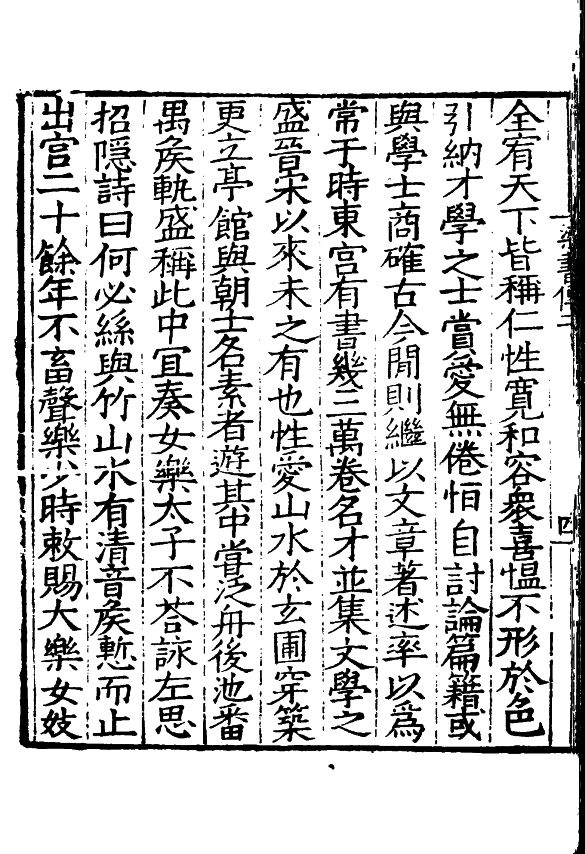 梁書傳二
四
全宥天下皆稱仁性寬和容衆喜愠不形於色
引納才學之士賞愛無倦恒自討論篇籍或
與學士商確古今閒則繼以文章著述率以爲
常于時東宫有書幾三萬卷名才並集文學之
盛晉宋以來未之有也性愛山水於玄圃穿築
更立亭館與朝士名素者遊其中嘗泛舟後池番
禺矦軌盛稱此中宜奏女樂太子不荅詠左思
招隱詩曰何必絲與竹山水有清音矦慙而止
出宫二十餘年不畜聲樂少時敕賜大樂女妓